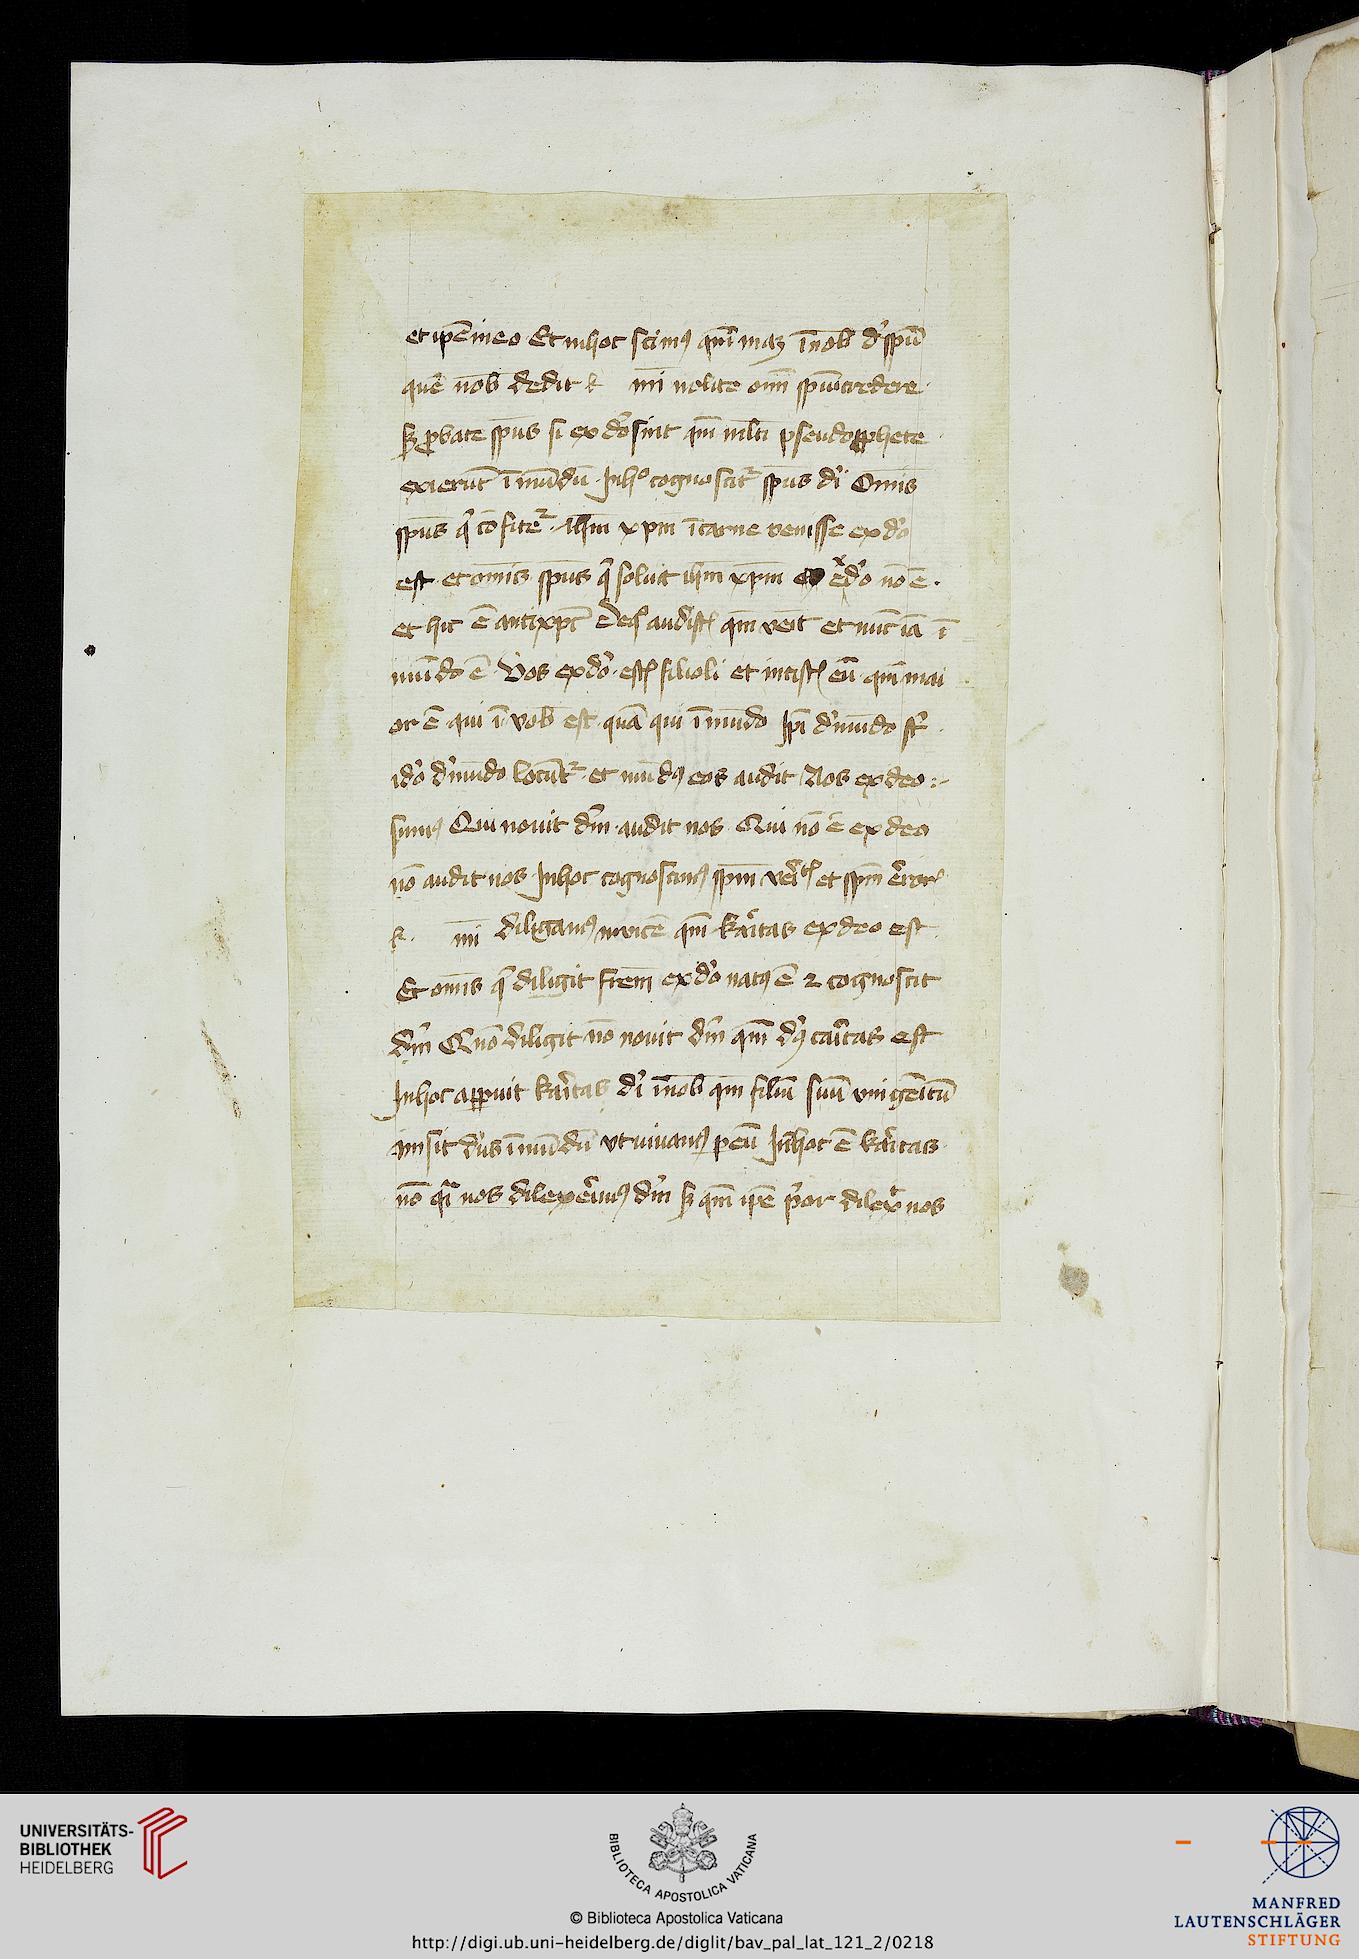 et ip̄e in eo Et in hoc scimꝰ qm̄ maꝫ ī nob̄ d' sp̄u
quē nob̄ dedit k mī nolite om̄i sp̄ui credere
sꝫ ꝓbate sp̄us si ex d'o sint qm̄ ml̄ti pseudopphete
exierūt ī mūdū In hº cognoscit᷑ sp̄us d'i Om̄is
sp̄us q' cōfite᷑ Ihm̄ xp̄m ī carne venisse ex d'o
est et omīs sp̄us q' soluit ihm̄ xp̄m ex d'o nō ē.
et hic ē antixp̄c audist' qm̄ veīt et nūc iā ī
mūdo ē Vos ex d'o est' filioli et eū qm̄ mai
or ē qui ī vob̄ est quā qui ī mūdo Ip̄i d' mūdo st̄
id'o d' mūdo locūt᷑ et mūdꝰ eos audit Nos ex deo
sumꝰ Qui nouit d'm audit nos Qui nō ē ex deo
nō audit nos In hoc cognoscimꝰ sp̄m et sp̄m
k. mī diligamꝰ inuicē qm̄ kar̄itas ex deo est
Et om̄is q' diligit fr̄em ex d'o natꝰ ē ⁊ cognoscit
d'm Q nō diligit nō nouit d'm qm̄ d'ꝰ car̄itas est
In hoc apparuit kar̄itas d'i ī nob̄ qm̄ filiū suū vnigenitū
misit d'us ī mūdū vt viuamꝰ p eū In hoc ē kar̄itas
nō q̄i nos dilexer̄imꝰ d'm sꝫ qm̄ ip̄e p'or dilex̄ nos
UNIVERSITÄTS-
BIBLIOTHEK
HEIDELBERG
BIBLIOTECA APOSTOLICA VATICANA
© Biblioteca Apostolica Vaticana
http://digi.ub.uni-heidelberg.de/diglit/bav_pal_lat_121_2/0218
MANFRED
LAUTENSCHLÄGER
STIFTUNG